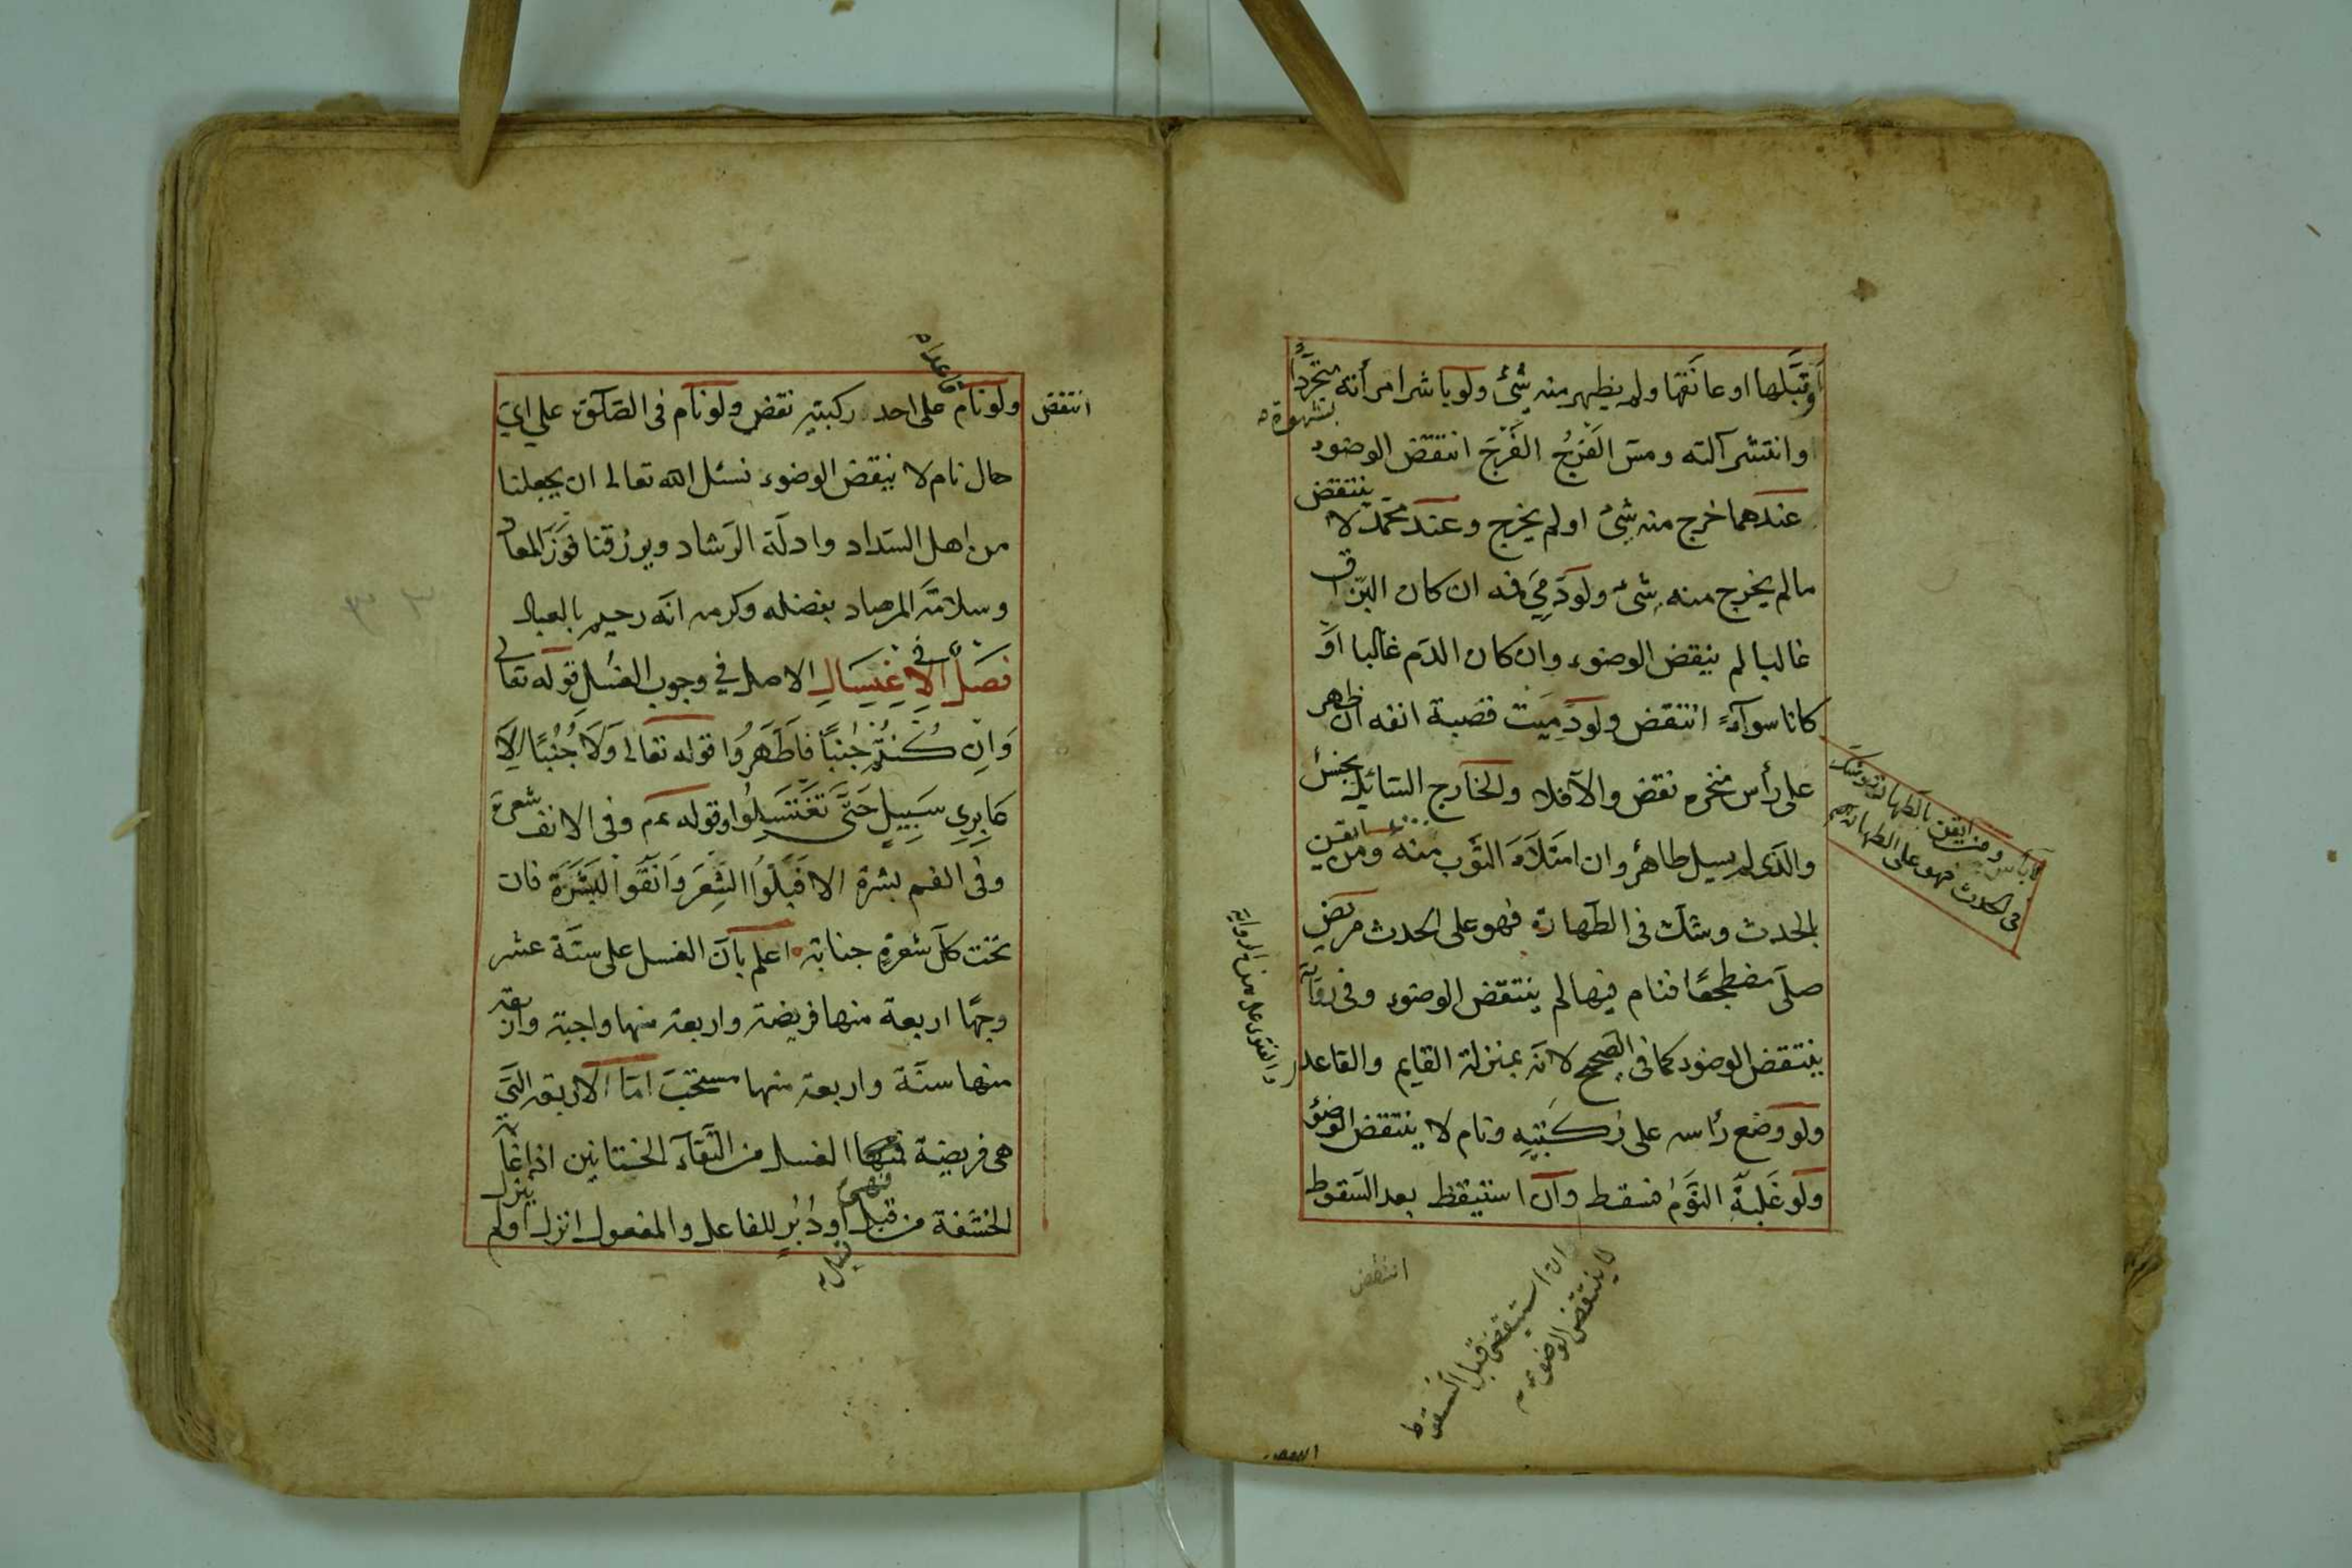 او قبّلها او عانقها ولم يظهر منه شئ ولو باشر امرأته متجردًا
بشهوة
وانتشر آلته ومسّ الفرجُ الفرجَ انتقض الوضوء
عندهما خرج منه شئ او لم يخرج وعند محمّد لا ينتقض
مالم يخرج منه شئ ولو دَمِيَ فمه ان كان البزاق
غالبا لم ينقض الوضوء وان كان الدّم غالبا او
كانا سوآء انتقض ولو دميت قصبة انفه ان ظهر
على رأس منخره نقض والاّ فلا والخارج السّائل نجس
والّذى لم يسيل طاهر وان امتلأ الثوب منه ومن يقن
بالحدث وشكّ فى الطّهارة فهو على الحدث مريض
صلّى مضطجعًا فنام فيها لم ينتقض الوضوء وفى رواية
ينتقض الوضوء كما فى الصحيح لانّه بمنزلة القايم والقاعد
ولو وضع رأسه على ركبتيه ونام لا ينتقض الوضوء
ولو غلبه النّوم فسقط وان استيقظ بعد السّقوط
لا بأس ومن ايقن بالطهارة وشكّ
فى الحدث فهو على الطهارة
والفتوى على هذه الرواية
انتقض
ان استيقض قبل السقوط
لا ينتقض الوضوء
انتقض
قاعدا
ولو نام على احد ركبتيه نقض ولو نام فى الصّلوة على اىّ
حال نام لا ينقض الوضوء نسئل الله تعالى ان يجعلنا
من اهل السّداد وادلّة الرّشاد ويرزقنا فوز المعاد
وسلامة المرصاد بفضله وكرمه انّه رحيم بالعباد
فصل فى الاغتسال الاصل فى وجوب الغسل قوله تعالى
وَاِنْ كُنْتُمْ جُنُبًا فَاطَّهَّرُوا قوله تعالى وَلاَ جُنُبًا اِلاَّ
عَابِرِى سَبِيلٍ حَتَّى تَغْتَسِلُوا وقوله عم وفى الانف شعرة
وفى الفم بشرة الا فبلّوا الشعر وانقوا البشرة فان
تحت كلّ شعرة جنابة اعلم بانّ الغسل على ستّة عشر
وجهًا اربعة منها فريضة واربعة منها واجبة واربعة
منها سنّة واربعة منها مستحبّ امّا الاربعة الّتى
هى فريضة فهى الغسل من التقآء الختانين اذا غابت
الحشفة من قبل او دُبُرٍ للفاعل والمفعول انزل او لم ينزل